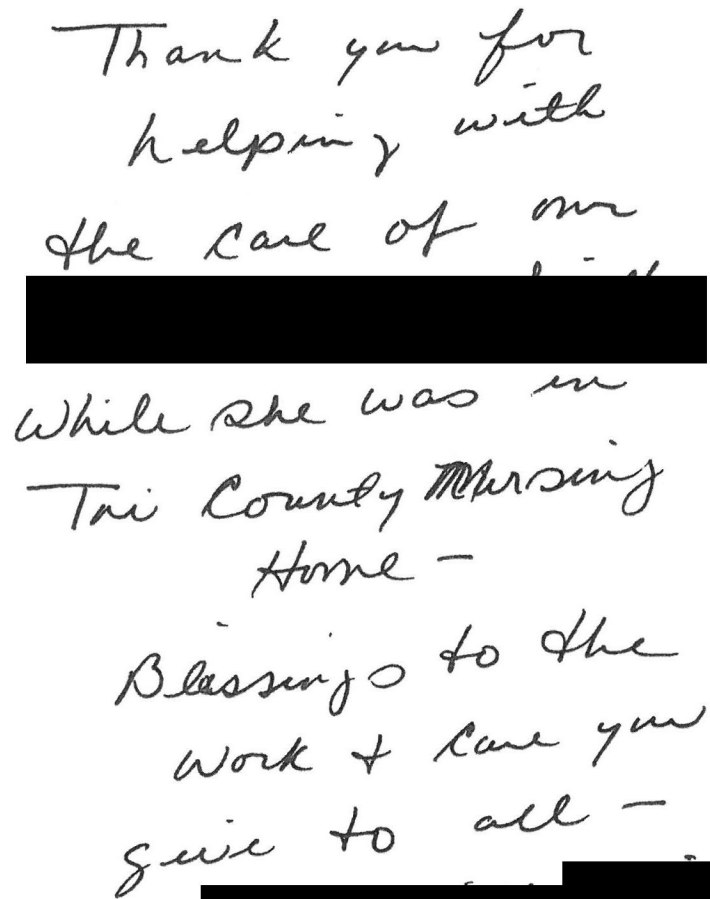 Thank you for
helping with
the care of our
While she was in
Tri County Nursing
Home -
Blessings to the
work + care you
give to all -